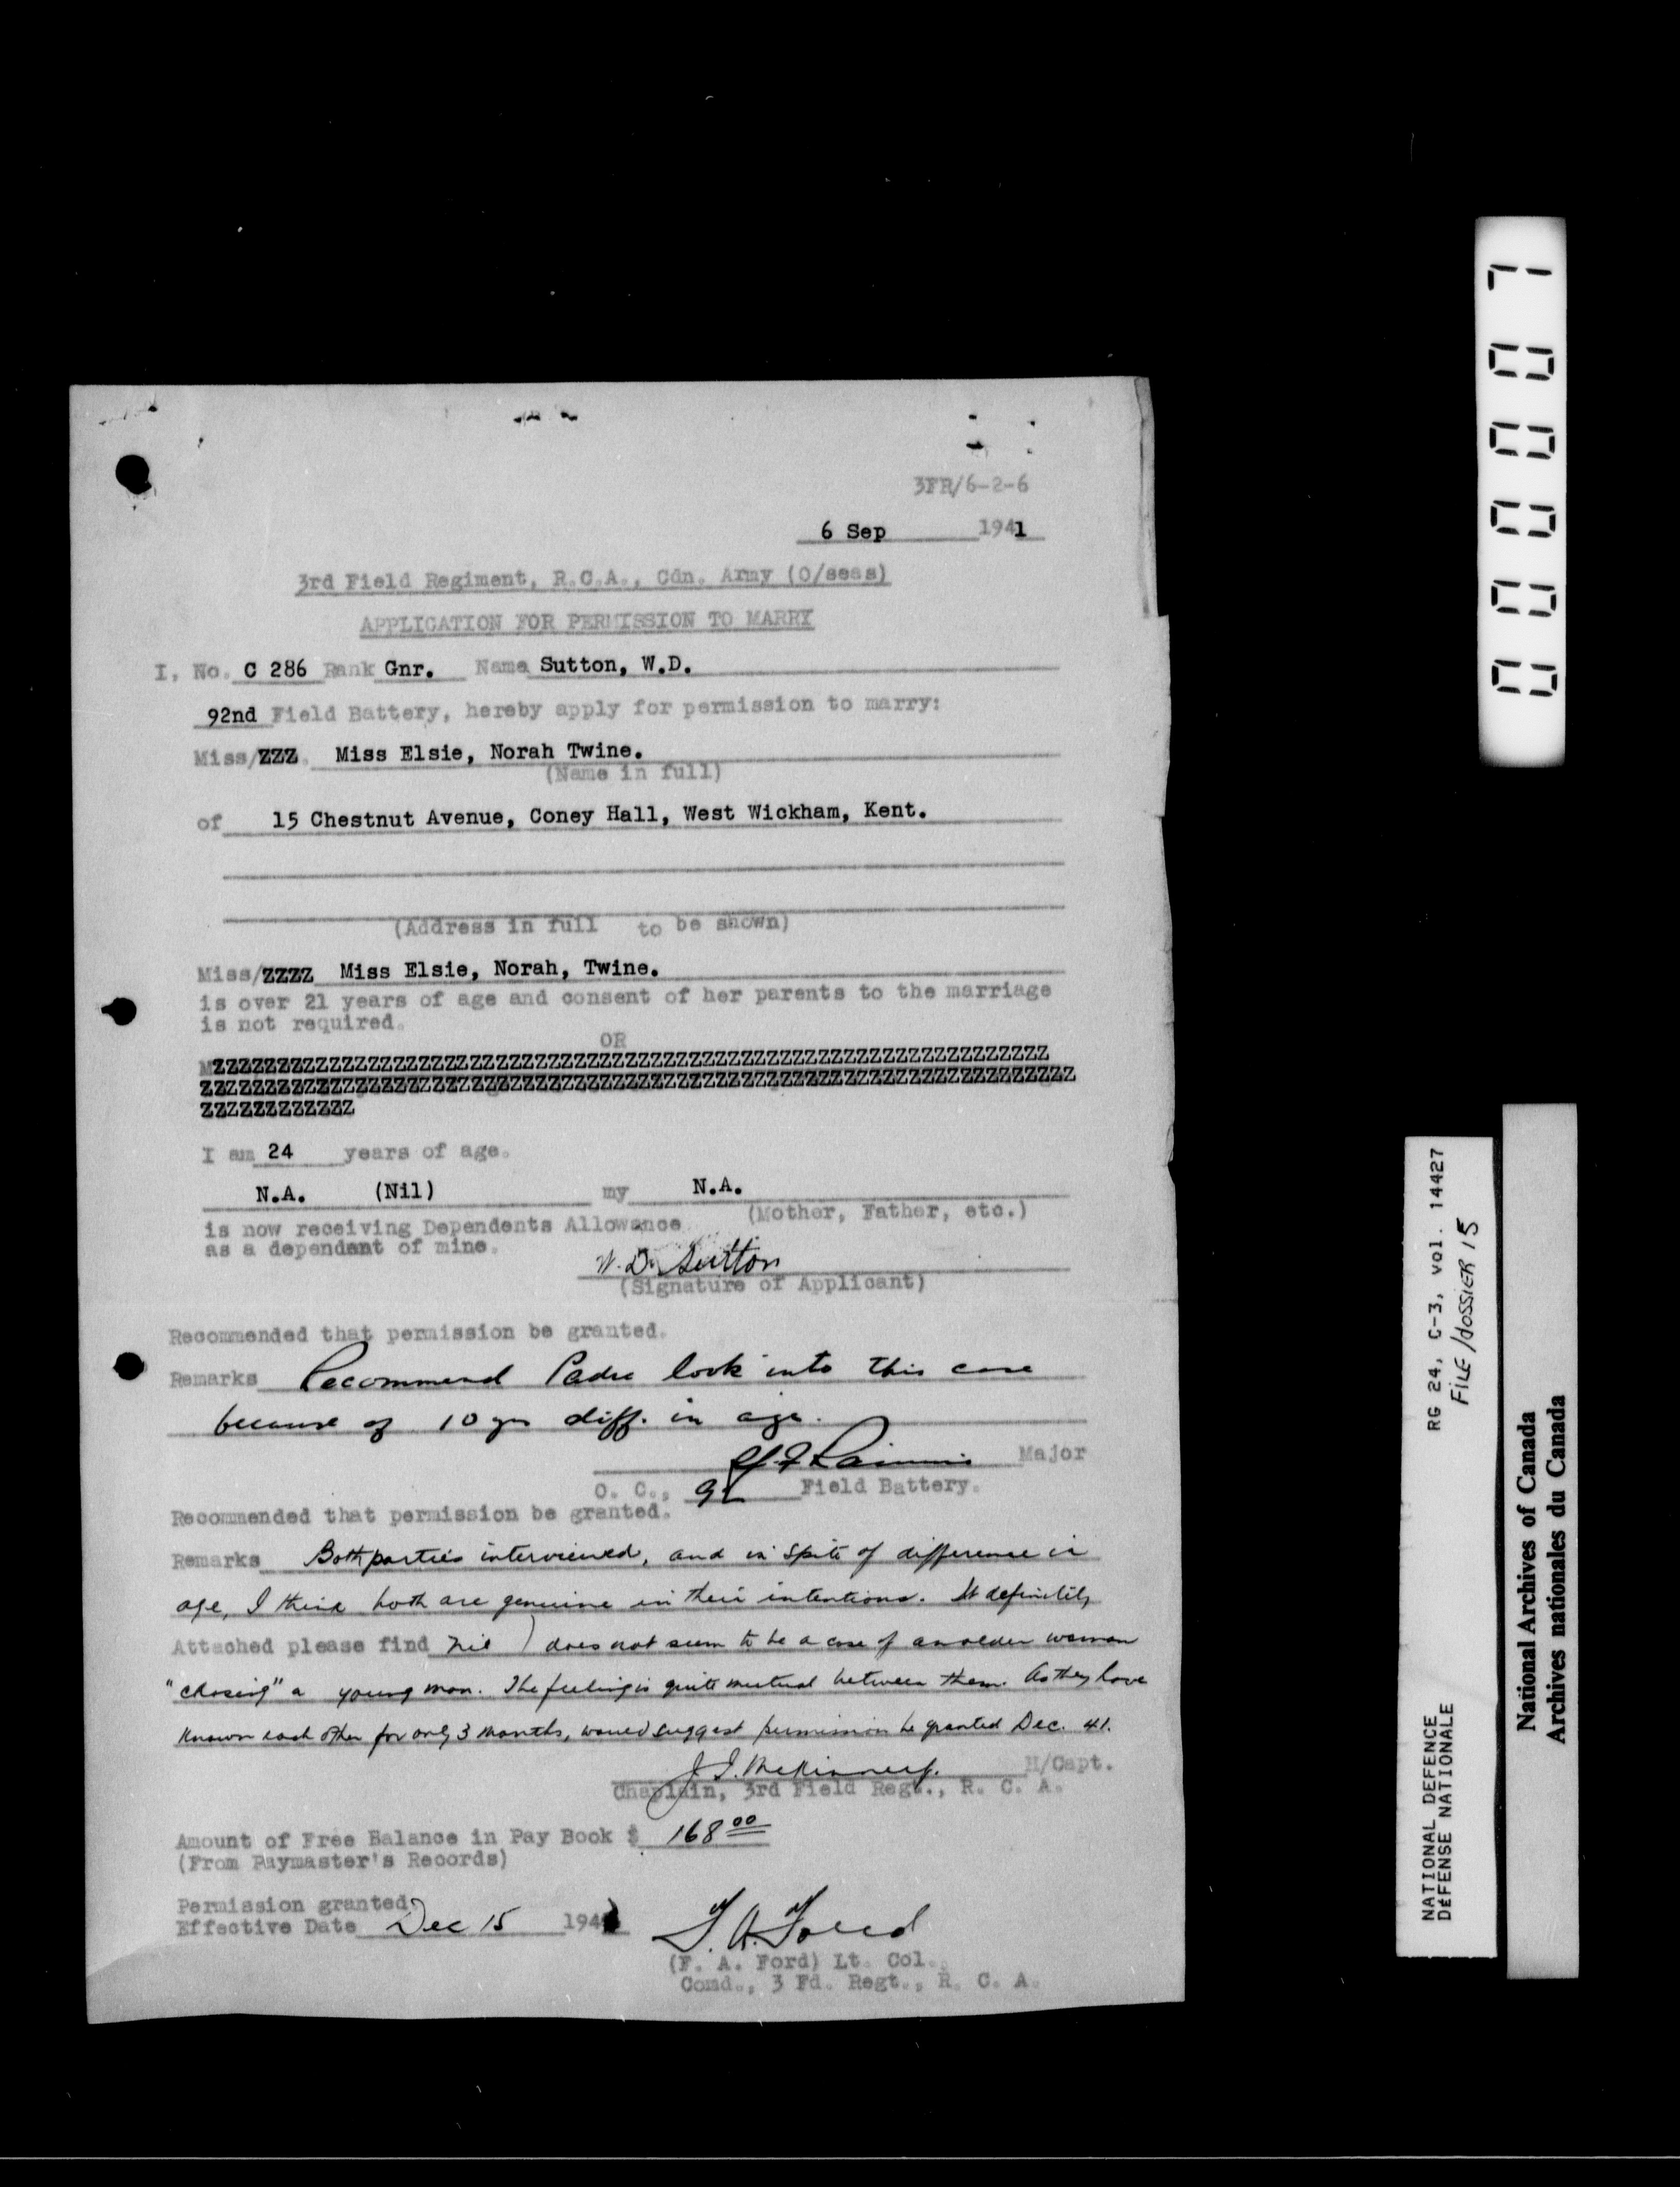 3FR/6-2-6
6 Sep 1941
3rd Field Regiment, R.C.A., Cdn. Army (O/seas)
APPLICATION FOR PERMISSION TO MARRY
I, No. C 286 Rank Gnr. Name Sutton, W.D.
92nd Field Battery, hereby apply for permission to marry:
Miss/ZZZ. Miss Elsie, Norah Twine.
(Name in full)
of 15 Chestnut Avenue, Coney Hall, West Wickham, Kent.
(Address in full to be shown)
Miss/ZZZZ Miss Elsie, Norah, Twine.
is over 21 years of age and consent of her parents to the marriage
is not required.
OR
I am 24 years of age.
N.A. (Nil) my N.A.
(Mother, Father, etc.)
is now receiving Dependents Allowance
as a dependant of mine.
W. D. Sutton
(Signature of Applicant)
Recommended that permission be granted.
Remarks Recommend Padre look into this case
because of 10 yrs diff. in age.
Major
O. C., 92 Field Battery.
Recommended that permission be granted.
Remarks Both parties interviewed, and in spite of difference in
age, I think both are genuine in their intentions. It definitely
Attached please find Nil ) does not seem to be a case of an older woman
"chasing" a young man. The feeling is quite mutual between them. As they have
known each other for only 3 months, would suggest permission be granted Dec. 41.
H/Capt.
Chaplain, 3rd Field Regt., R. C. A.
Amount of Free Balance in Pay Book $ 168 00
(From Paymaster's Records)
Permission granted,
Effective Date Dec 15 1941
F. A. Ford
(F. A. Ford) Lt. Col.,
Comd., 3 Fd. Regt., R. C. A.
000007
RG 24, C-3, vol. 14427
FILE/dOSSIER 15
NATIONAL DEFENCE
DéFENSE NATIONALE
National Archives of Canada
Archives nationales du Canada